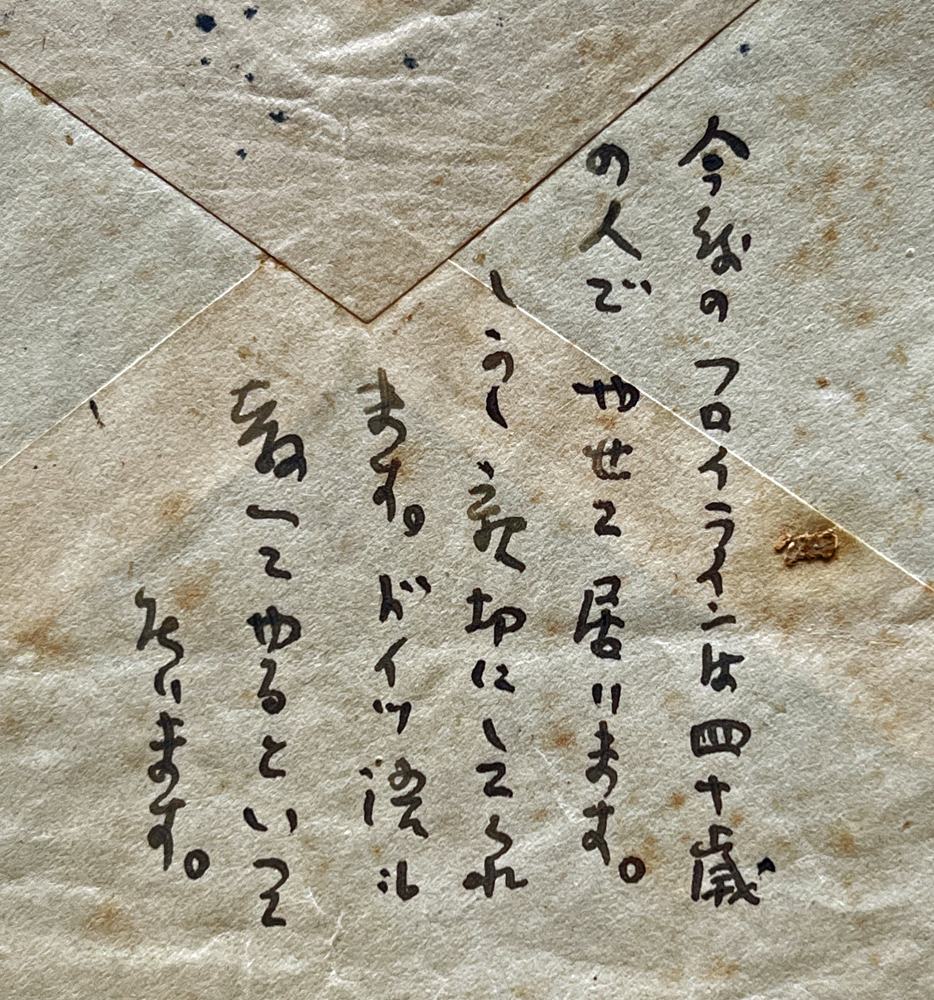 今度のフロイラインは四十歳
の人で やせて居ります。
しかし 親切にしてくれ
ます。ドイツ語も
教へてやるといって
をります。